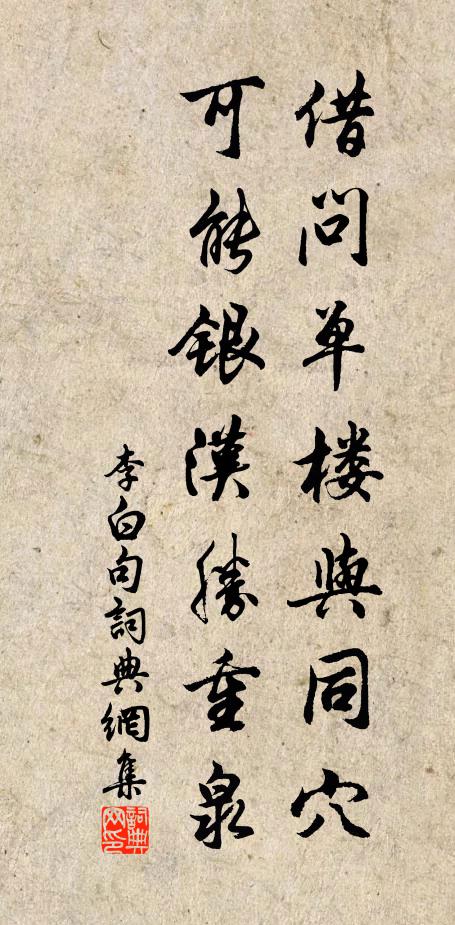 借问单楼與同穴
可能銀漢勝重泉
李白句詞典網集
詞典网印